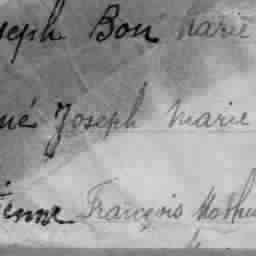 seph Bon Marie
né Joseph Marie
ienne François Mathu